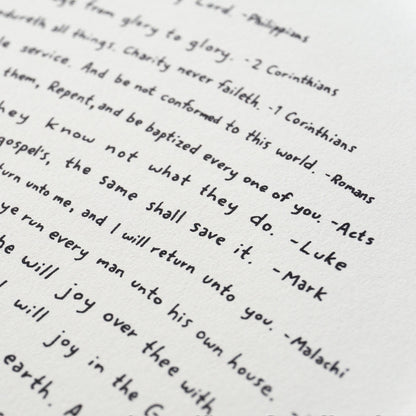 Lord. -Philippians
from glory to glory. -2 Corinthians
endureth all things. Charity never faileth. -1 Corinthians
service. And be not conformed to this world. -Romans
them, Repent, and be baptized every one of you. -Acts
they know not what they do. -Luke
gospel's, the same shall save it. -Mark
turn unto me, and I will return unto you. -Malachi
ye run every man unto his own house.
he will joy over thee with
I will joy in the G
earth. A